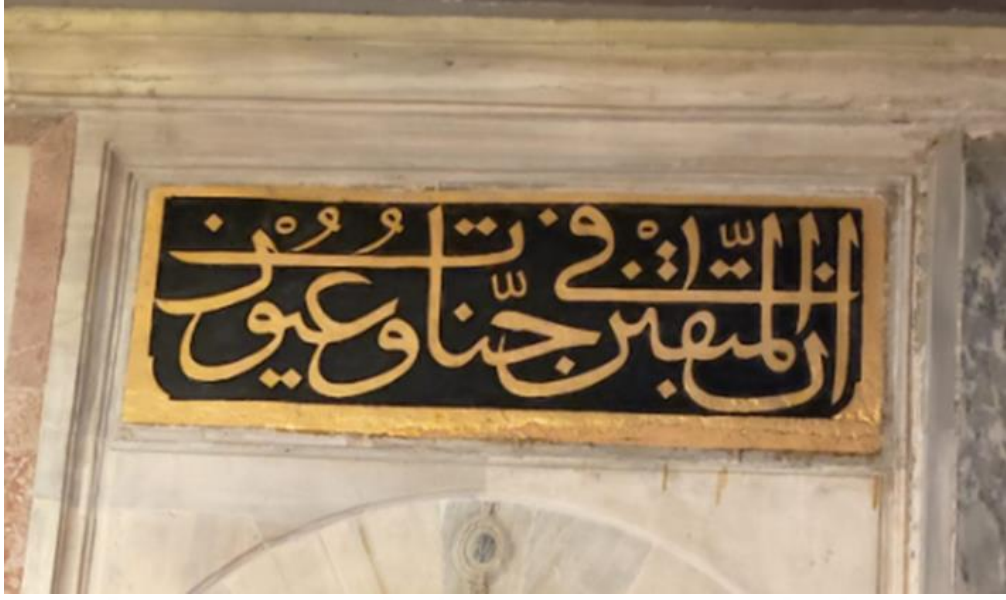 ان المتقين في جنات وعيون